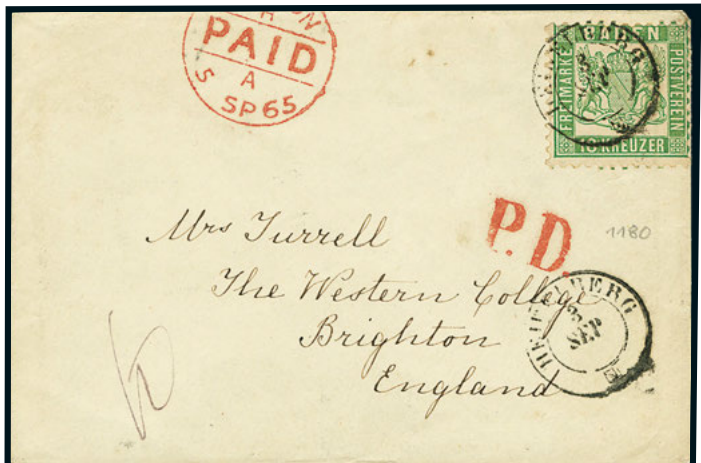 PAID
A
5 SP65
BADEN
FREIMARKE
POSTVEREIN
18 KREUZER
HEIDELBERG
3
SEP
P.D.
1180
Mrs Turrell
The Western College
Brighton
England
HEIDELBERG
3
SEP